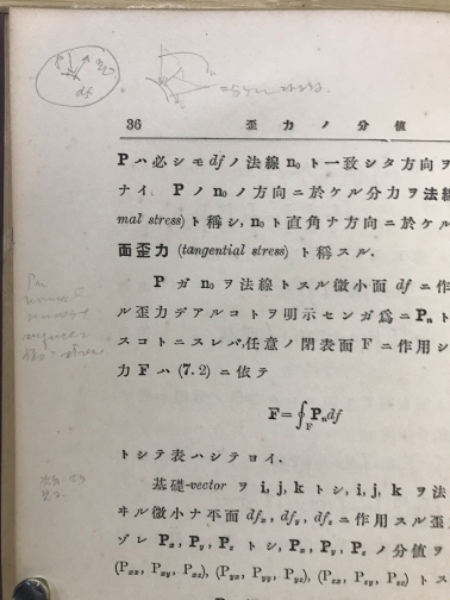 P
df
36 歪力ノ分値
Pハ必シモdfノ法線n₀ト一致シタ方向ヲ
ナイ. Pノn₀ノ方向ニ於ケル分力ヲ法線
mal stress)ト稱シ, n₀ト直角ナ方向ニ於ケル
面歪力 (tangential stress)ト稱スル.
Pガn₀ヲ法線トスル微小面dfニ作
ル歪力デアルコトヲ明示センガ爲ニPₙト
スコトニスレバ,任意ノ閉表面Fニ作用シ
力Fハ(7.2)ニ依テ
F=∮_F Pₙdf
トシテ表ハシテヨイ.
基礎-vectorヲi, j, kトシ, i, j, kヲ法
ヰル微小ナ平面dfₓ, dfᵧ, df_zニ作用スル歪
ゾレPₓ, Pᵧ, P_zトシ, Pₓ, Pᵧ, P_zノ分値ヲ
(Pₓₓ, Pₓᵧ, Pₓ_z), (Pᵧₓ, Pᵧᵧ, Pᵧ_z), (P_zₓ, P_zᵧ, P_zz)トス